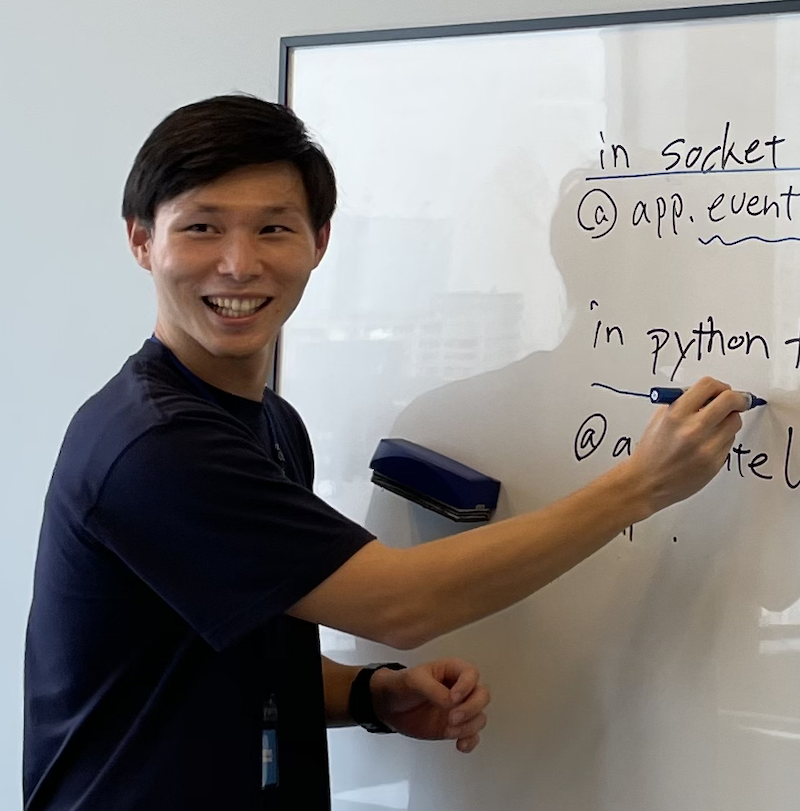 in socket
@ app.event
in python
@